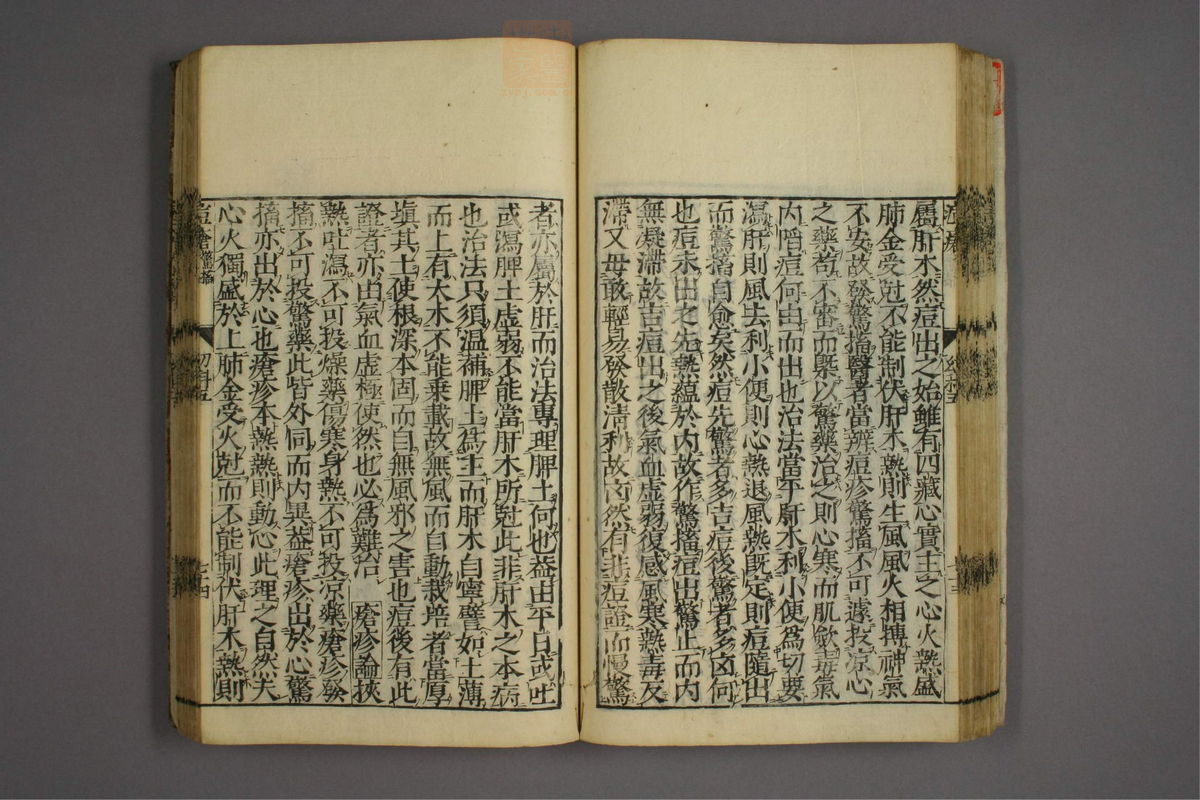 屬肝木然痘出之始雖有四藏心實主之心火熱盛
肺金受尅不能制伏肝木熱則生風風火相搏神氣
不安故發驚搐醫者當辨痘疹驚搐不可遽投涼心
之藥苟不審而槩以驚藥治之則心寒而肌歛毒氣
內陷痘何由而出也治法當平肝木利小便爲切要
瀉肝則風去利小便則心熱退風熱旣定則痘隨出
而驚搐自愈矣然痘先驚者多吉痘後驚者多凶何
也痘未出之先熱蘊於內故作驚搐痘出驚止而內
無凝滯故吉痘出之後氣血虛弱復感風寒熱毒反
滯又毋敢輕易發散清利故凶然有非痘證而慢驚
者亦屬於肝而治法專理脾土何也益由平日或吐
或瀉脾土虛弱不能當肝木所尅此非肝木之本病
也治法只須溫補脾土爲主而肝木自寧譬如土薄
而上有大木不能乘載故無風而自動栽培者當厚
塡其土使根深本固而自無風邪之害也痘後有此
證者亦由氣血虛極使然也必爲難治 瘡疹論挾
熱吐瀉不可投燥藥傷寒身熱不可投涼藥瘡疹發
搐不可投驚藥此皆外同而內異益瘡疹出於心驚
搐亦出於心也瘡疹本熱熱則動心此理之自然夫
心火獨盛於上肺金受火尅而不能制伏肝木熱則
痘瘡驚搐 幼科五 七十四